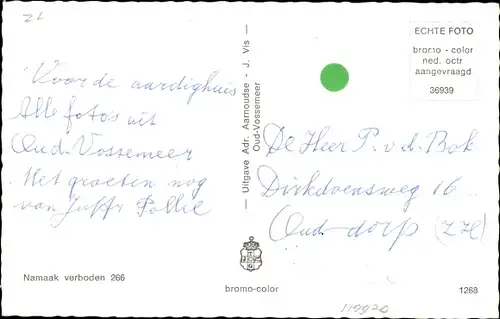 ZL
ECHTE FOTO
bromo - color
ned. octr
aangevraagd
36939
Voor de aardighuis
Alle foto's uit
Oud-Vossemeer
Met groeten nog
van Juffr Pollie
— Uitgave Adr. Aarnoudse - J. Vis —
Oud-Vossemeer
De Heer P. v. d. Bok
Dirkdoensweg 16
Oud-dorp (ZH)
Namaak verboden 266
bromo-color
1268
119920